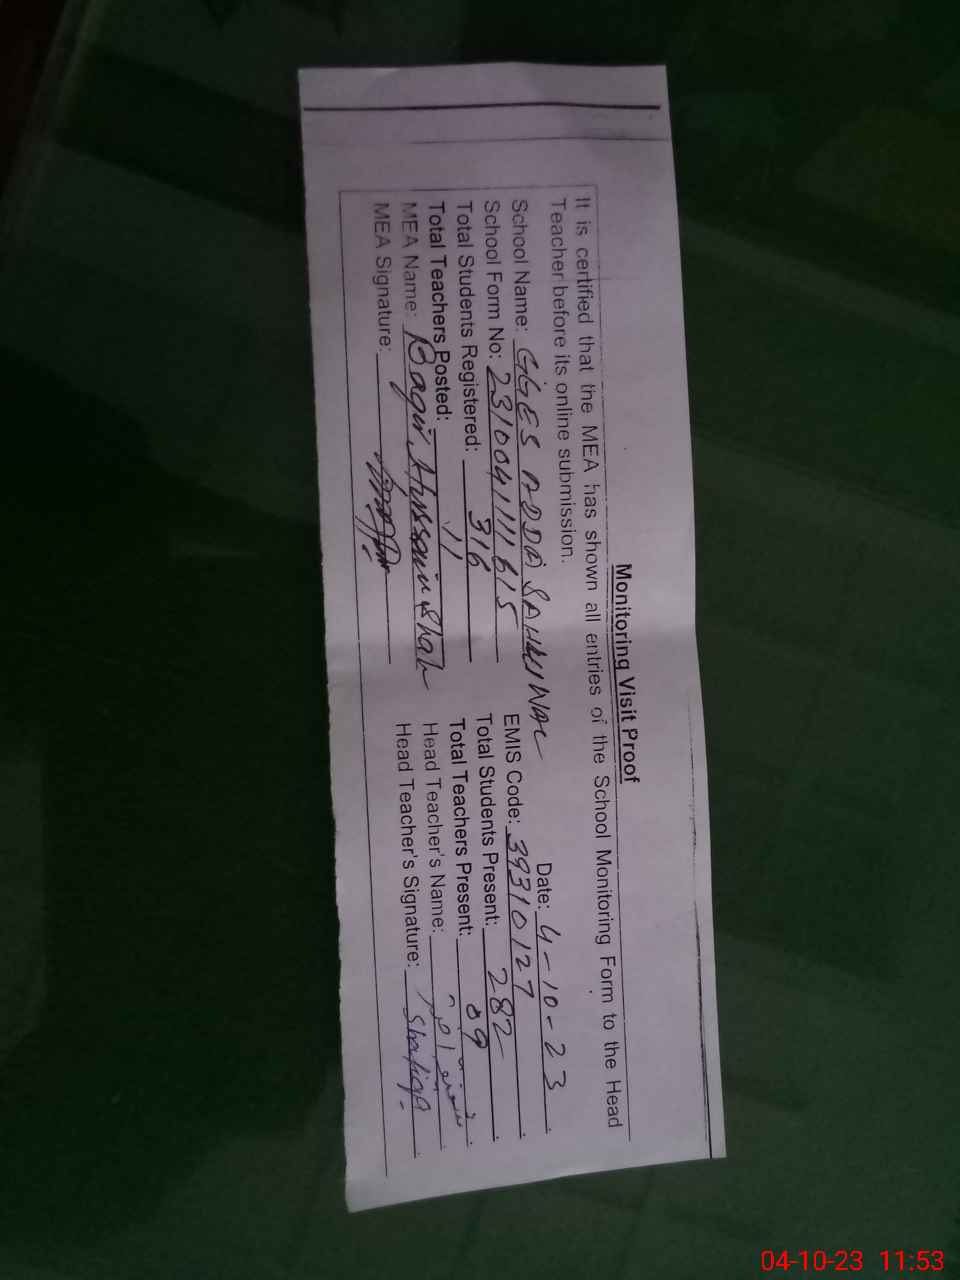 Monitoring Visit Proof
It is certified that the MEA has shown all entries of the School Monitoring Form to the Head
Teacher before its online submission.
Date: 4-10-23
School Name: GGES ADDA SAHIWAL
School Form No: 2310041111615 EMIS Code: 39310127
Total Students Registered: 316 Total Students Present: 282
Total Teachers Posted: 11 Total Teachers Present: 09
MEA Name: Baqir Hussain Shah Head Teacher's Name:
MEA Signature: Head Teacher's Signature: Shafiqa
04-10-23 11:53